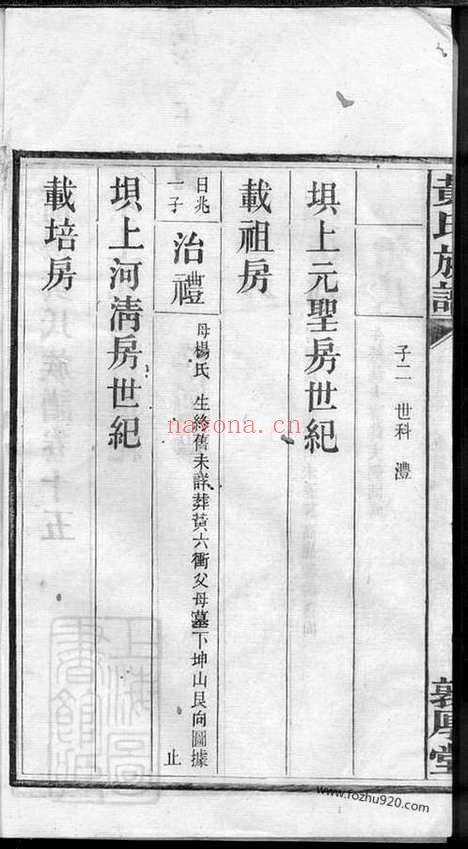 黃氏族譜
敦厚堂
子二 世科 澧
垻上元聖房世紀
載祖房
日兆一子
治禮
母楊氏 生終舊未詳葬黃六衝父母墓下坤山艮向圖據
止
垻上河清房世紀
載培房
nayona.cn
www.fozhu920.com